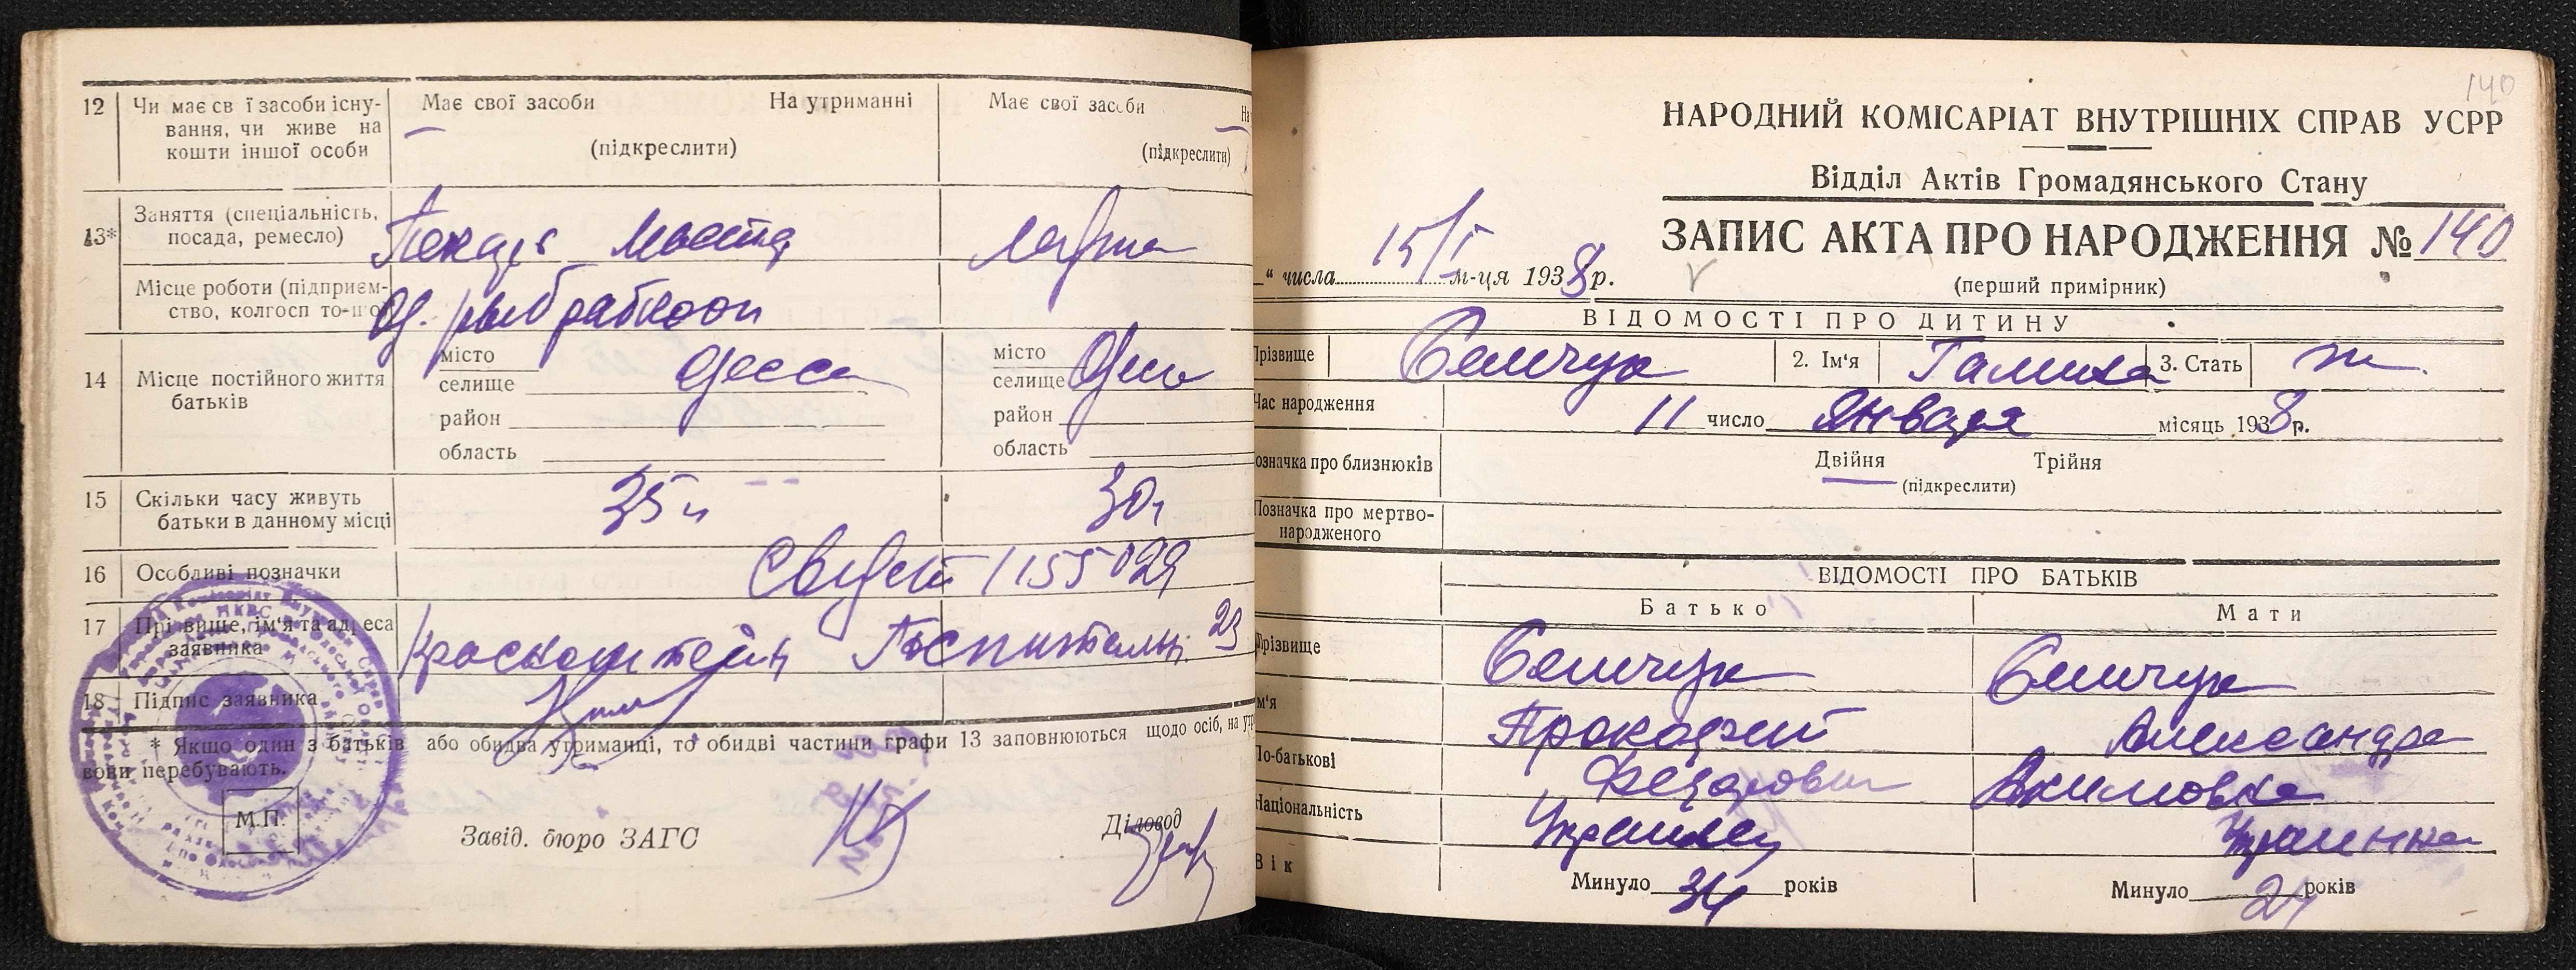 12 Чи має св ї засоби існу-
вання, чи живе на
кошти іншої особи
Має свої засоби На утриманні
(підкреслити)
Має свої засоби На
(підкреслити)
13* Заняття (спеціальність,
посада, ремесло)
Пекарь
Місце роботи (підприєм-
ство, колгосп то-що)
14 Місце постійного життя
батьків
місто
селище Одесса
район
область
місто
селище
район
область
15 Скільки часу живуть
батьки в данному місці
35 л
30 л
16 Особливі позначки
1155029
17 Прі вище, ім'я та адреса
заявника
Госпитальн. 23
18 Підпис заявника
* Якщо один з батьків або обидва утриманці, то обидві частини графи 13 заповнюються щодо осіб, на утр
вони перебувають.
М.П.
Завід. бюро ЗАГС
Діловод
140
НАРОДНИЙ КОМІСАРІАТ ВНУТРІШНІХ СПРАВ УСРР
Відділ Актів Громадянського Стану
ЗАПИС АКТА ПРО НАРОДЖЕННЯ № 140
„ “ числа 15/I м-ця 1938 р.
(перший примірник)
ВІДОМОСТІ ПРО ДИТИНУ
Прізвище Семчук 2. Ім'я Галина 3. Стать ж
Час народження 11 число Января місяць 1938 р.
Позначка про близнюків Двійня Трійня
(підкреслити)
Позначка про мертво-
народженого
ВІДОМОСТІ ПРО БАТЬКІВ
Батько Мати
Прізвище Семчук Семчук
Ім'я Прокофий Александра
По-батькові Акимовна
Національність Украинец Украинка
Вік Минуло 34 років Минуло 24 років